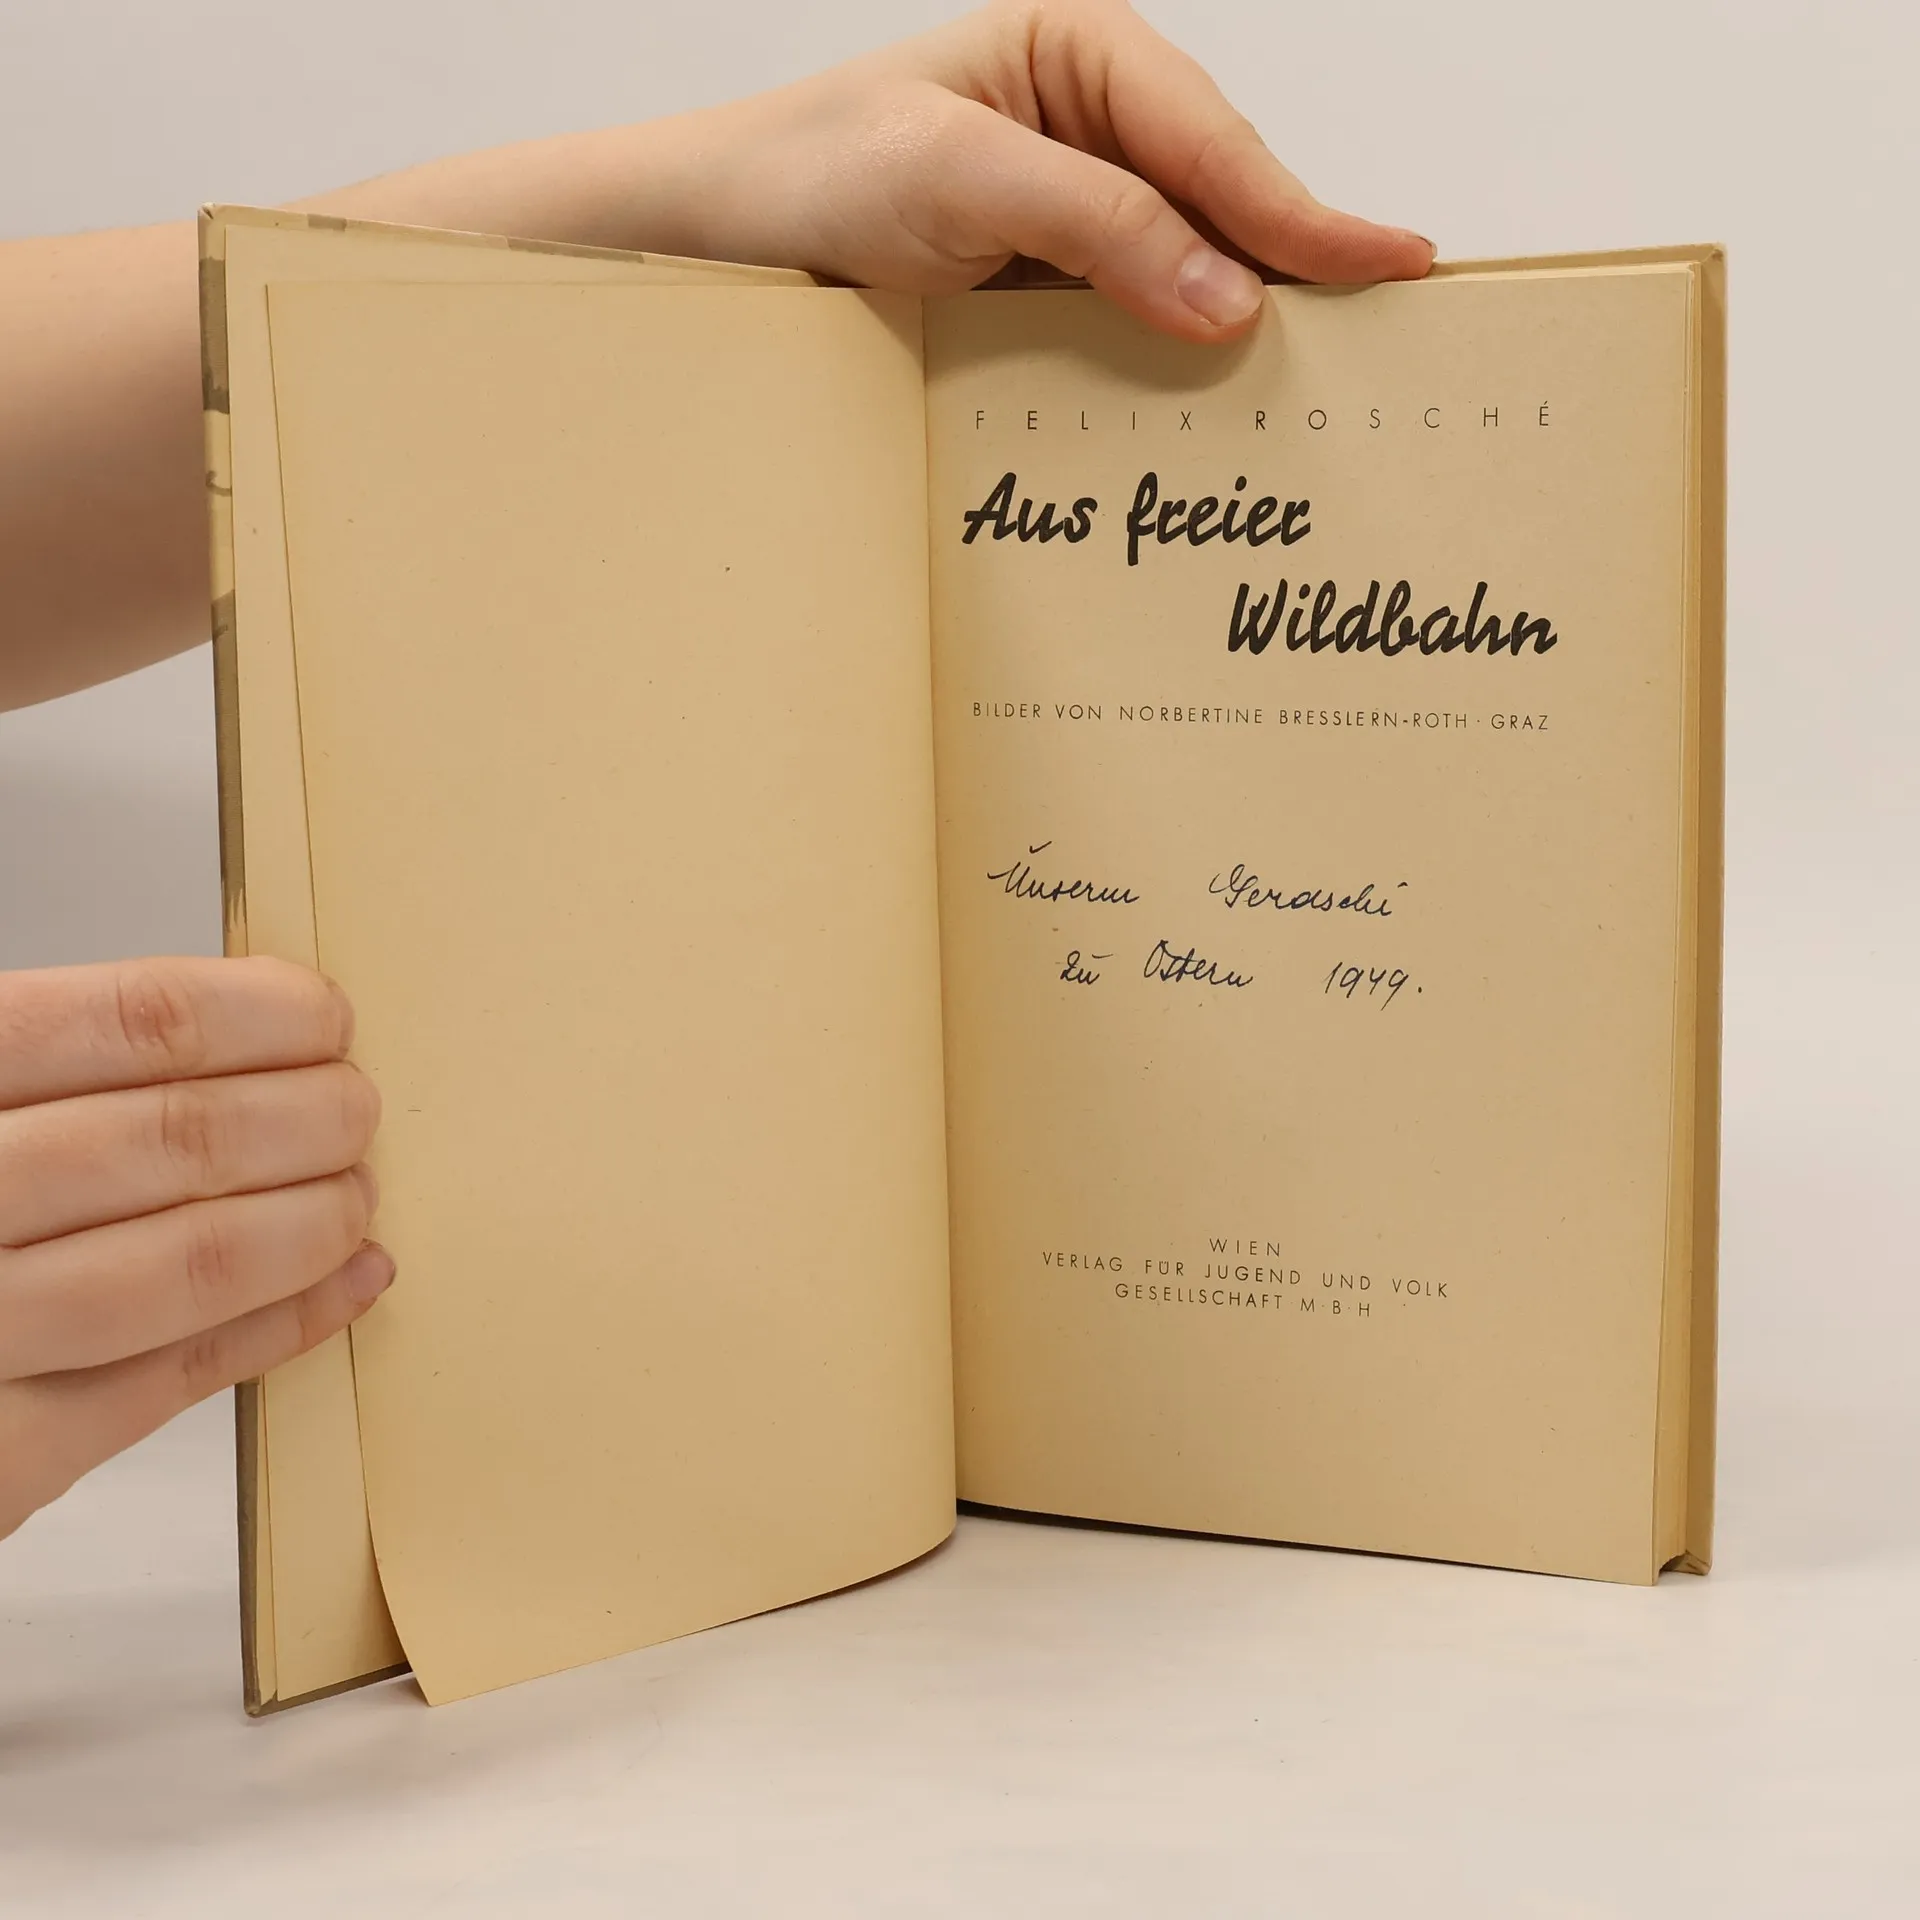 FELIX ROSCHÉ
Aus freier
Wildbahn
BILDER VON NORBERTINE BRESSLERN-ROTH · GRAZ
Unserm Gerdschi
zu Ostern 1949.
WIEN
VERLAG FÜR JUGEND UND VOLK
GESELLSCHAFT M·B·H